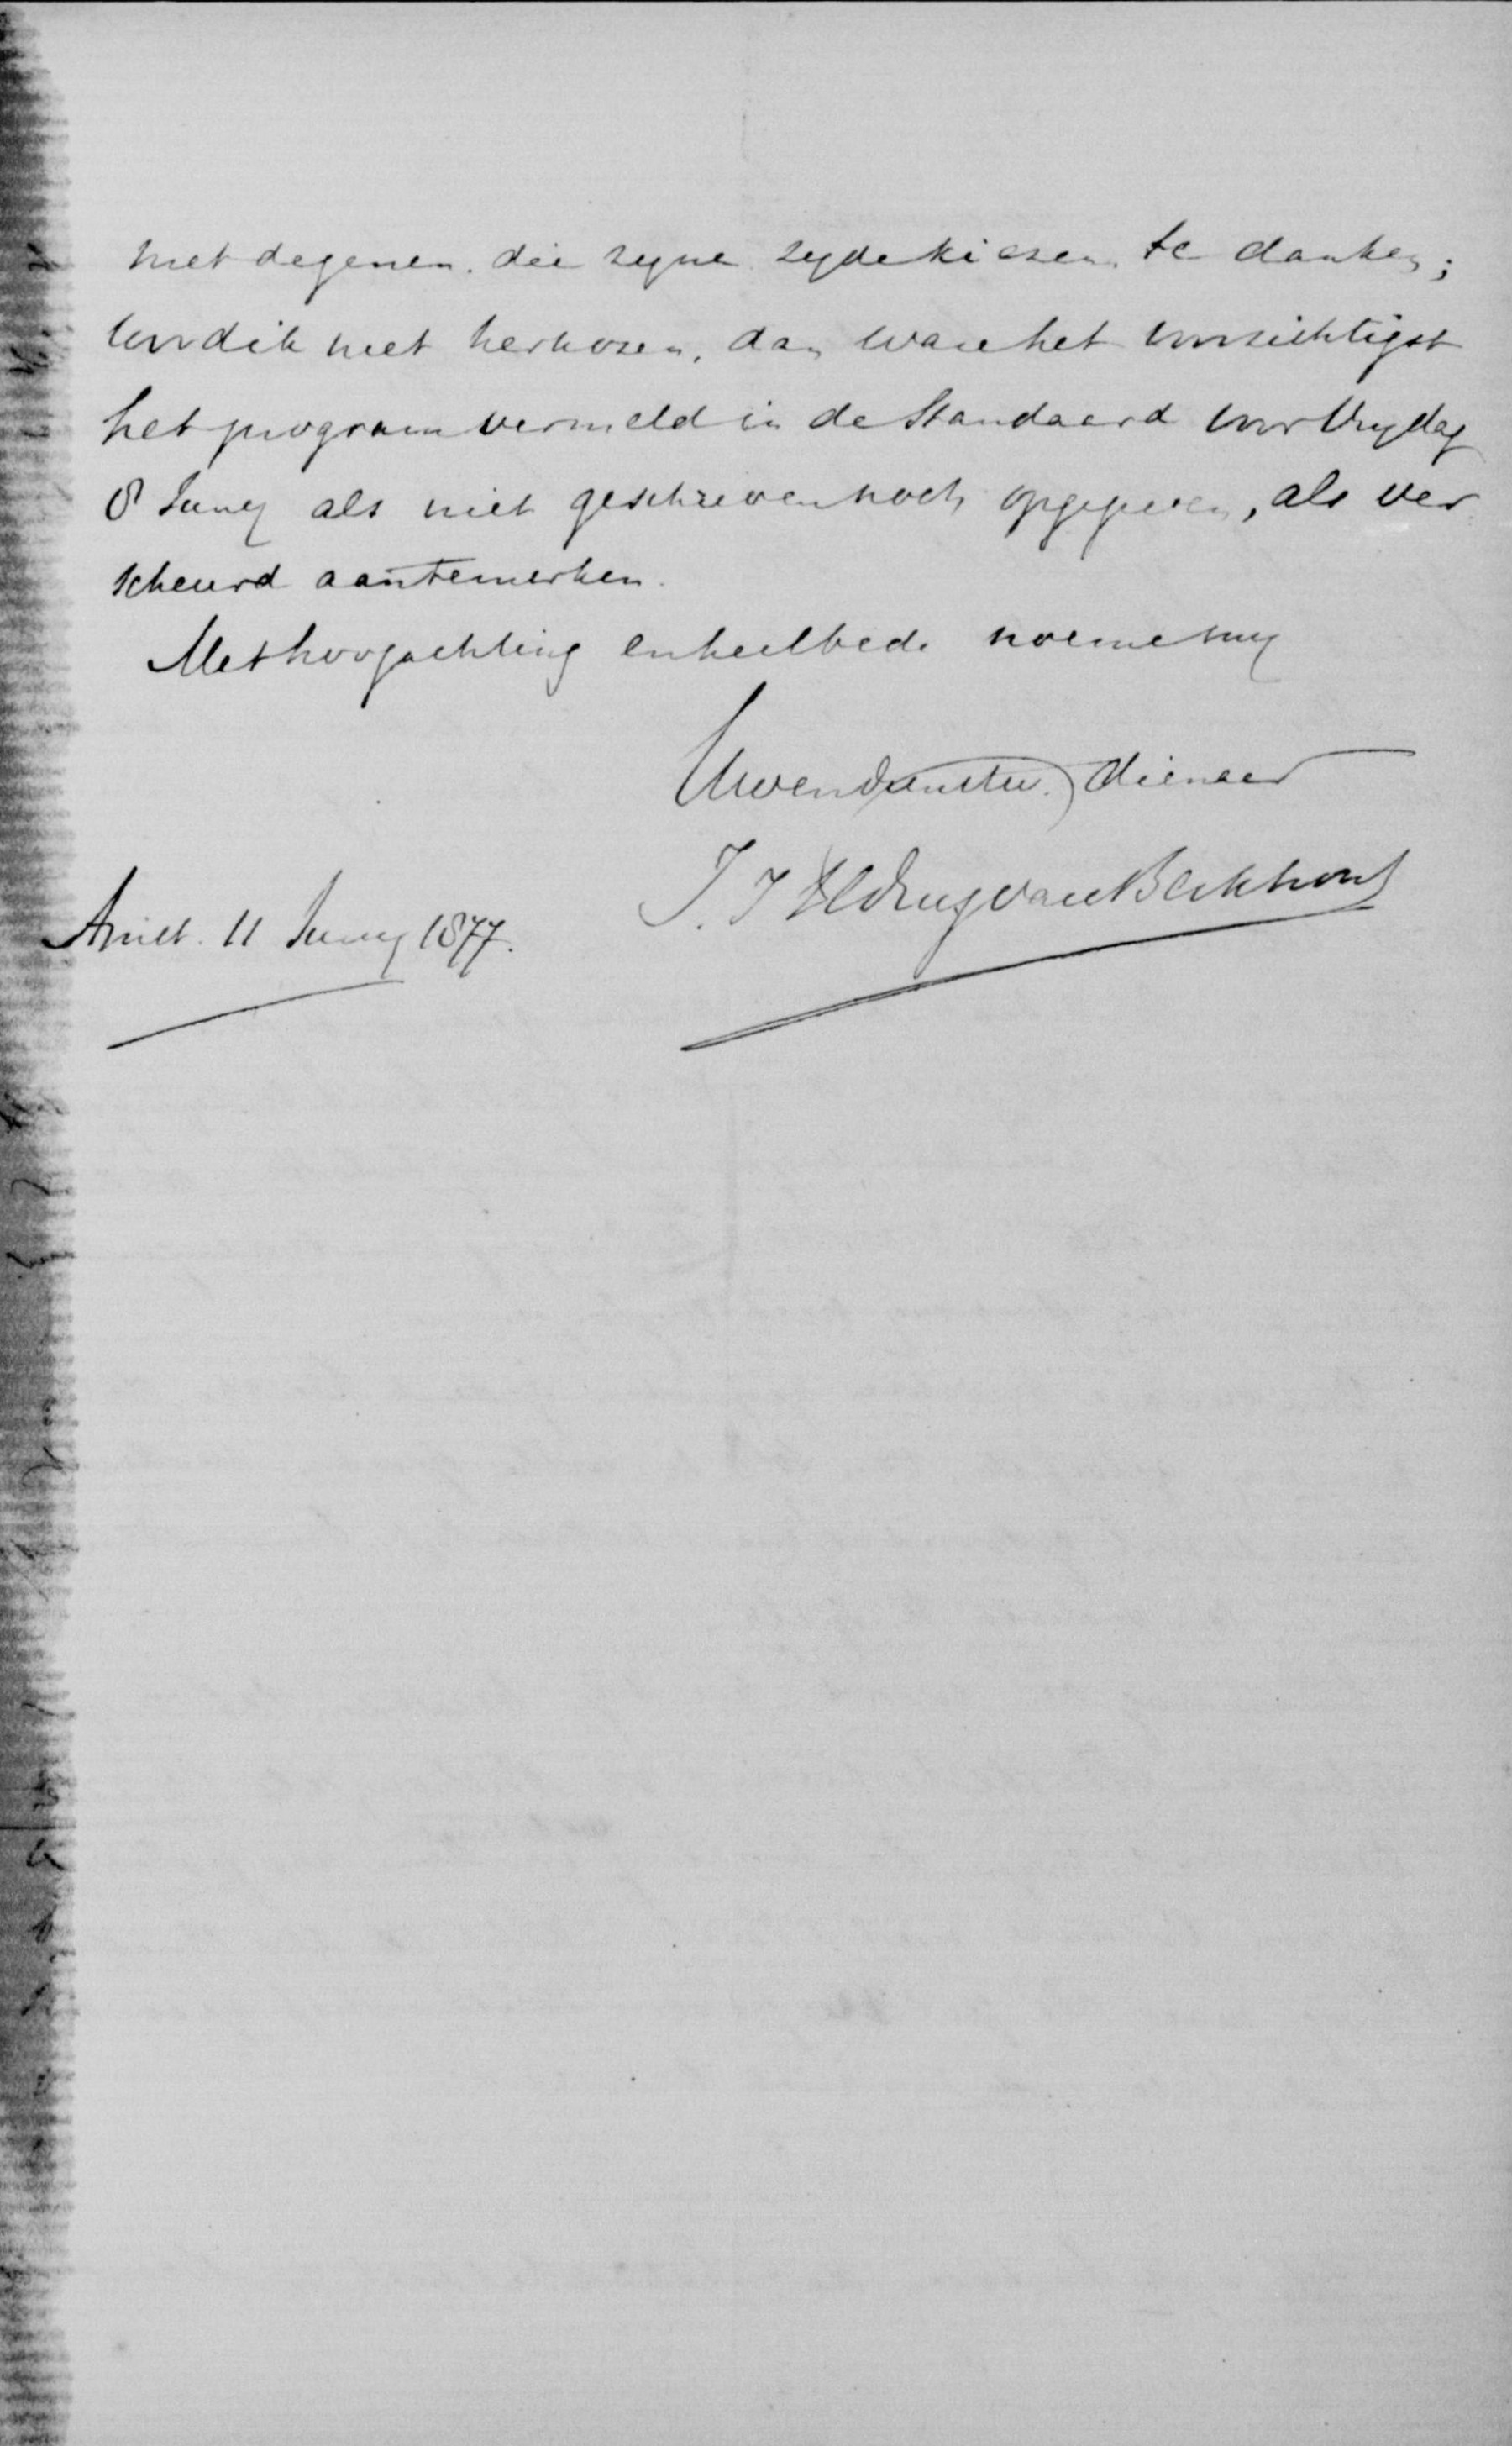 met degenen die zyne zyde kiezen te danken;
word ik niet herkozen, dan ware het voorzichtigst
het program vermeld in de Standaard voor Vrydag
8 Juny als niet geschreven noch opgegeven, als ver
scheurd aantemerken.
Met hoogachting en heilbede noeme my
Uwen dienaar
J. J. Teding van Berkhout
Amst. 11 Juny 1877.